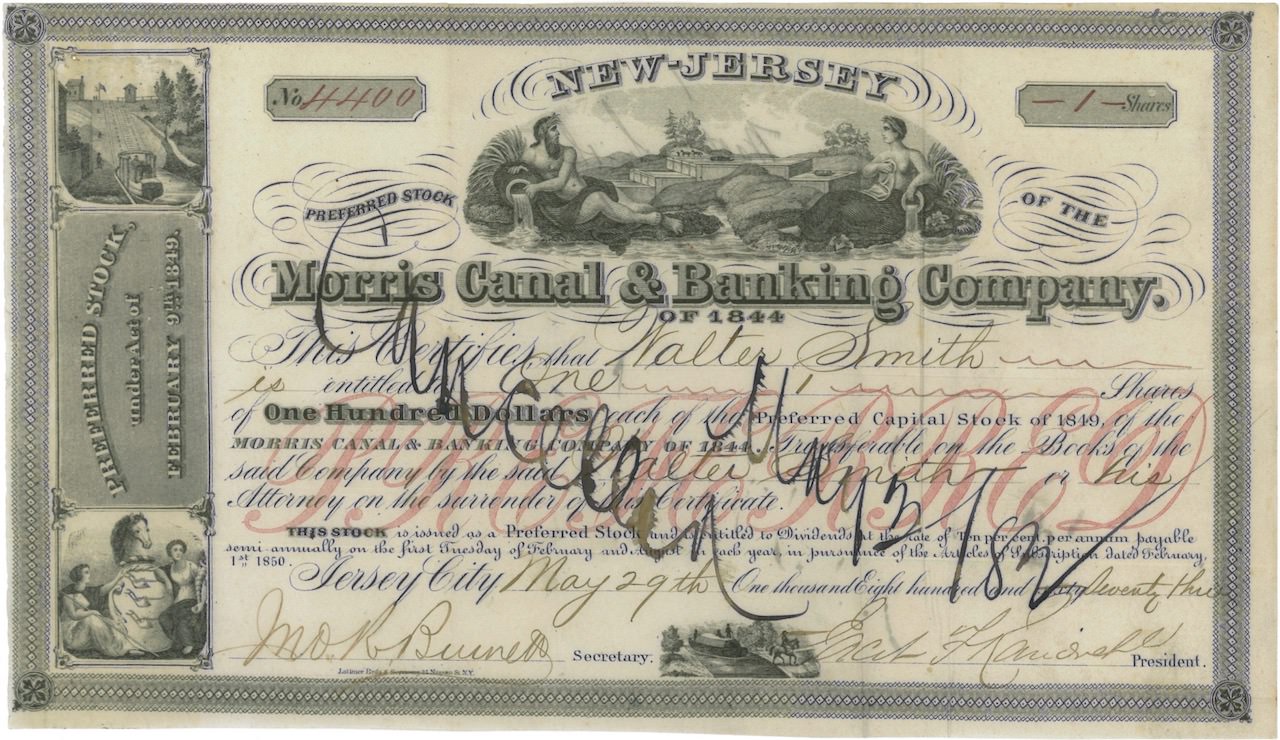 No 4400
NEW-JERSEY
—1— Shares
PREFERRED STOCK
OF THE
Morris Canal & Banking Company.
OF 1844
PREFERRED STOCK,
under Act of
FEBRUARY 9TH 1849.
This Certifies that Walter Smith
is entitled to One 1 Shares
of One Hundred Dollars each of the Preferred Capital Stock of 1849, of the
MORRIS CANAL & BANKING COMPANY OF 1844, Transferable on the Books of the
said Company by the said Walter Smith or his
Attorney on the surrender of this Certificate.
PREFERRED
THIS STOCK is issued as a Preferred Stock and is entitled to Dividends at the rate of Ten per cent. per annum payable
semi-annually on the first Tuesday of February and August in each year, in pursuance of the Articles of Subscription dated February,
1st 1850.
Jersey City May 29th One thousand Eight hundred and Seventy three
Secretary.
President.
Latimer Bros & Seymour 21 Nassau St N.Y.
Cancelled May 31/82